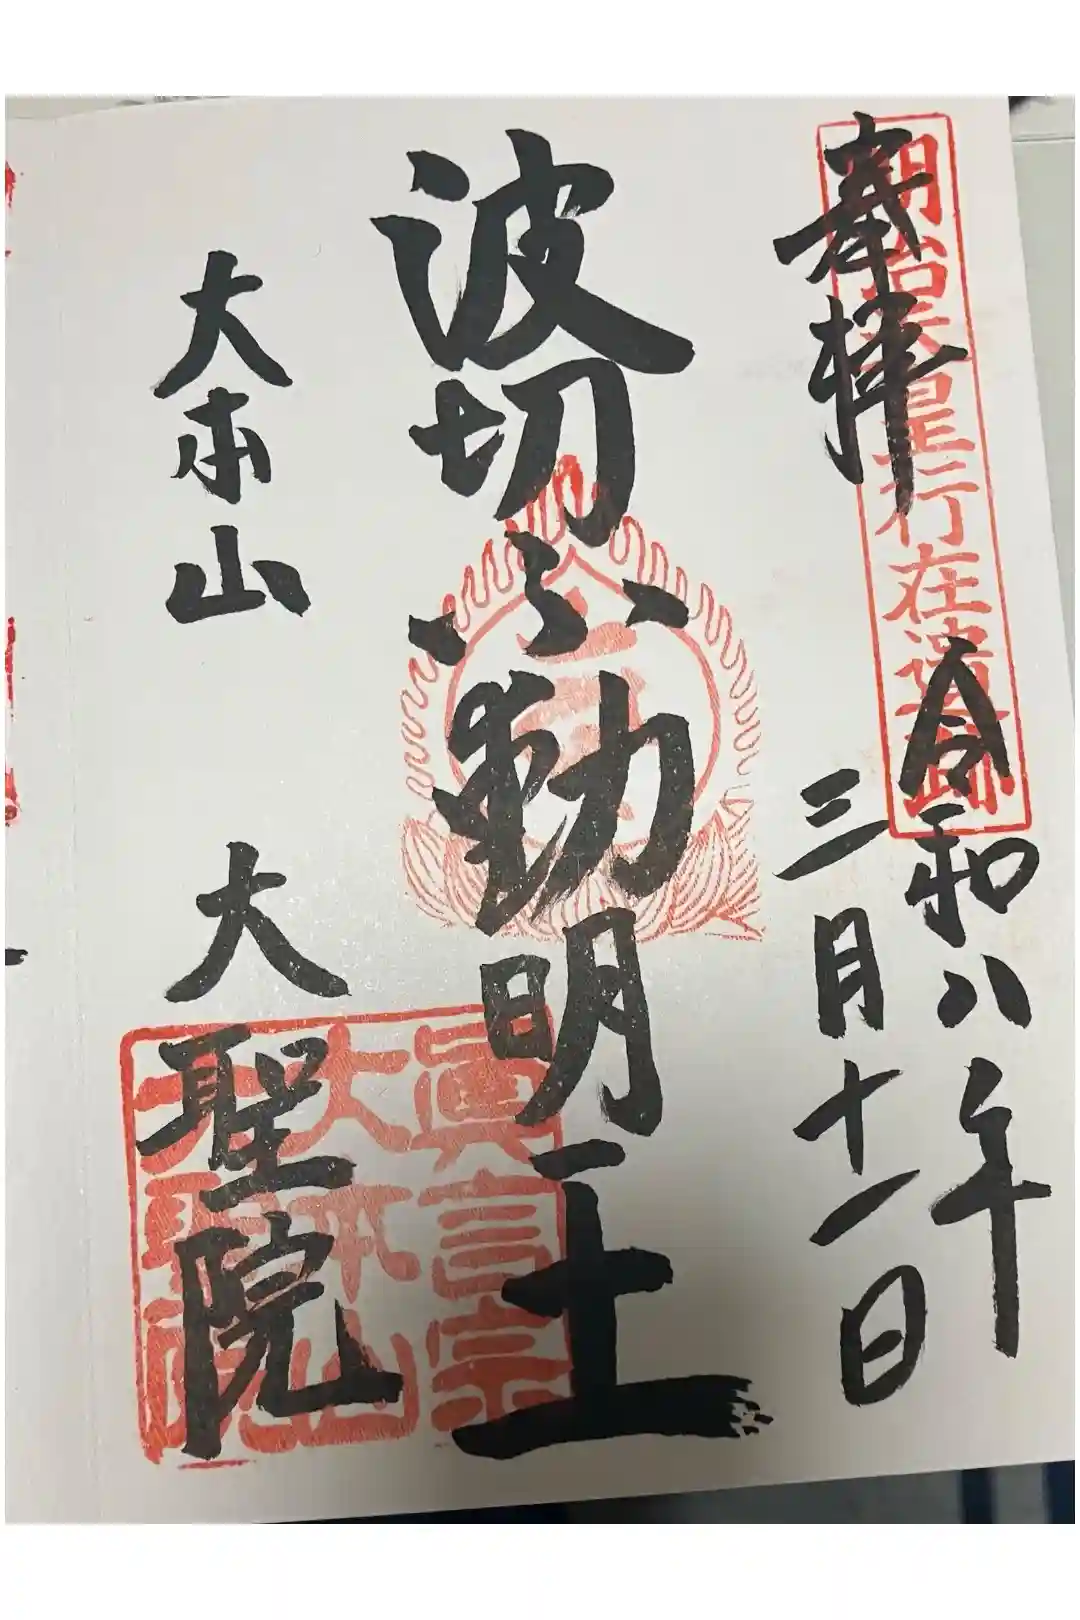 奉拝
明治天皇行在遺跡
令和八年
三月十一日
波切不動明王
大本山
大聖院
眞言宗
大本山
大聖院